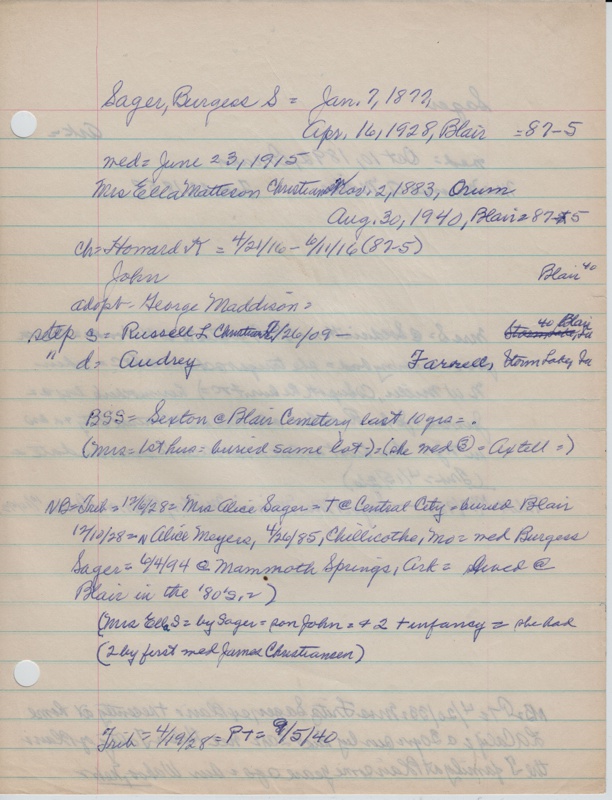 Sager, Burgess S = Jan. 7, 1872
Apr. 16, 1928, Blair = 87-5
med = June 23, 1915
Mrs Ella Matteson Christiansen Nov. 2, 1883, Orum
Aug. 30, 1940, Blair = 87-5
ch = Howard K = 4/21/16 - 6/11/16 (87-5)
John Blair 40
adopt - George Maddison =
step s = Russell L Christiansen 2/26/09 - 40 Blair
" d = Audrey Farrell, Storm Lake, Ia
BSS = Sexton @ Blair Cemetery last 10 yrs = .
(Mrs = 1st hus = buried same lot) = (she med ③ = Axtell = )
NB = Trib = 12/6/28 = Mrs Alice Sager = † @ Central City = buried Blair
12/10/28 = N Alice Meyers, 4/26/85, Chillicothe, Mo = med Burgess
Sager = 6/4/94 @ Mammoth Springs, Ark = lived @
Blair in the '80's, = )
(Mrs Ella S = by Sager = son John = & 2 † infancy = she had
(2 by first med James Christiansen)
Trib = 4/19/28 = PT = 9/5/40